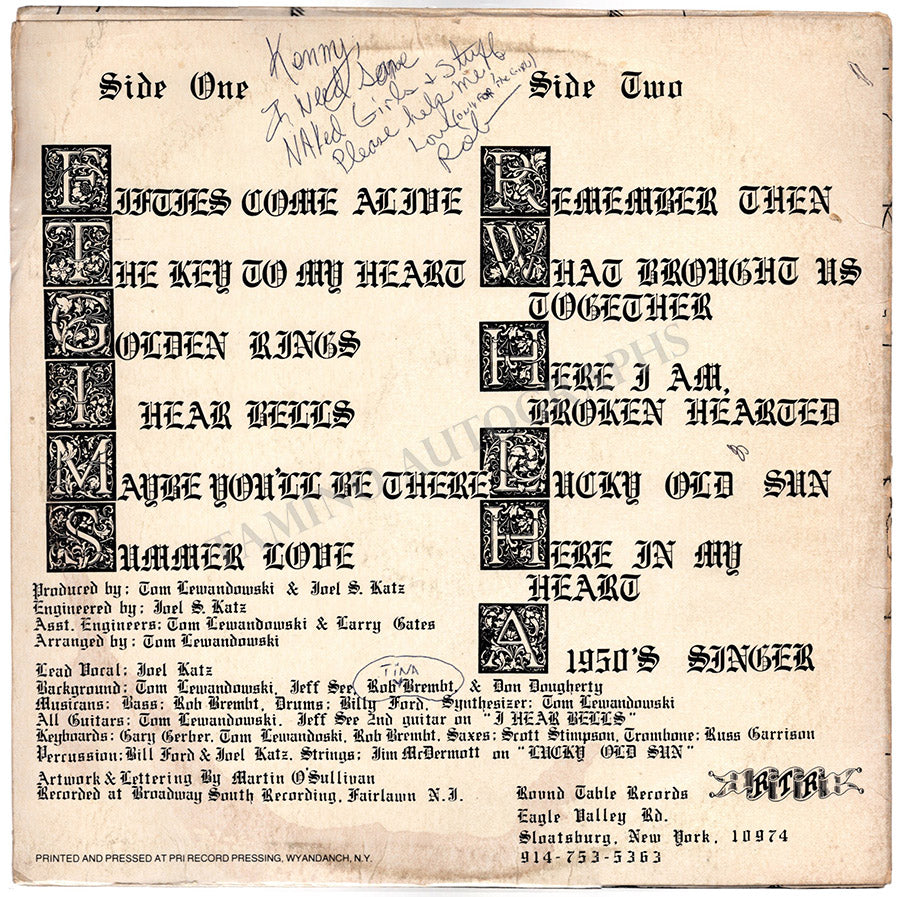 Side One
Kenny,
I Need Some
NAKed Girls & Stuff
Please help me!
Love (only FOR the Girls)
Rob
Side Two
FIFTIES COME ALIVE
THE KEY TO MY HEART
GOLDEN RINGS
I HEAR BELLS
MAYBE YOU'LL BE THERE
SUMMER LOVE
REMEMBER THEN
WHAT BROUGHT US
TOGETHER
HERE I AM,
BROKEN HEARTED
LUCKY OLD SUN
HERE IN MY
HEART
A 1950'S SINGER
Produced by: Tom Lewandowski & Joel S. Katz
Engineered by: Joel S. Katz
Asst. Engineers: Tom Lewandowski & Larry Gates
Arranged by: Tom Lewandowski
Lead Vocal: Joel Katz
TINA
Background: Tom Lewandowski, Jeff See, Rob Brembt, & Don Dougherty
Musicans: Bass: Rob Brembt, Drums: Billy Ford, Synthesizer: Tom Lewandowski
All Guitars: Tom Lewandowski. Jeff See 2nd guitar on "I HEAR BELLS"
Keyboards: Gary Gerber, Tom Lewandoski, Rob Brembt, Saxes: Scott Stimpson, Trombone: Russ Garrison
Percussion: Bill Ford & Joel Katz, Strings: Jim McDermott on "LUCKY OLD SUN"
Artwork & Lettering By Martin O'Sullivan
Recorded at Broadway South Recording, Fairlawn N.J.
Round Table Records
RTR
Eagle Valley Rd.
Sloatsburg, New York, 10974
914-753-5363
PRINTED AND PRESSED AT PRI RECORD PRESSING, WYANDANCH, N.Y.
TAMINO AUTOGRAPHS